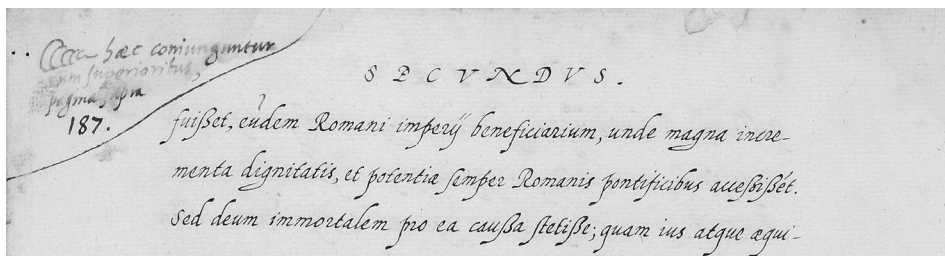 hæc coniunguntur
cum superioribus,
pagina supra
187.
SECVNDVS.
fuißet, eûdem Romani imperÿ beneficiarium, unde magna incre-
menta dignitatis, et potentiæ semper Romanis pontificibus accessißét.
Sed deum immortalem pro ea caußa stetiße; quam ius atque æqui-